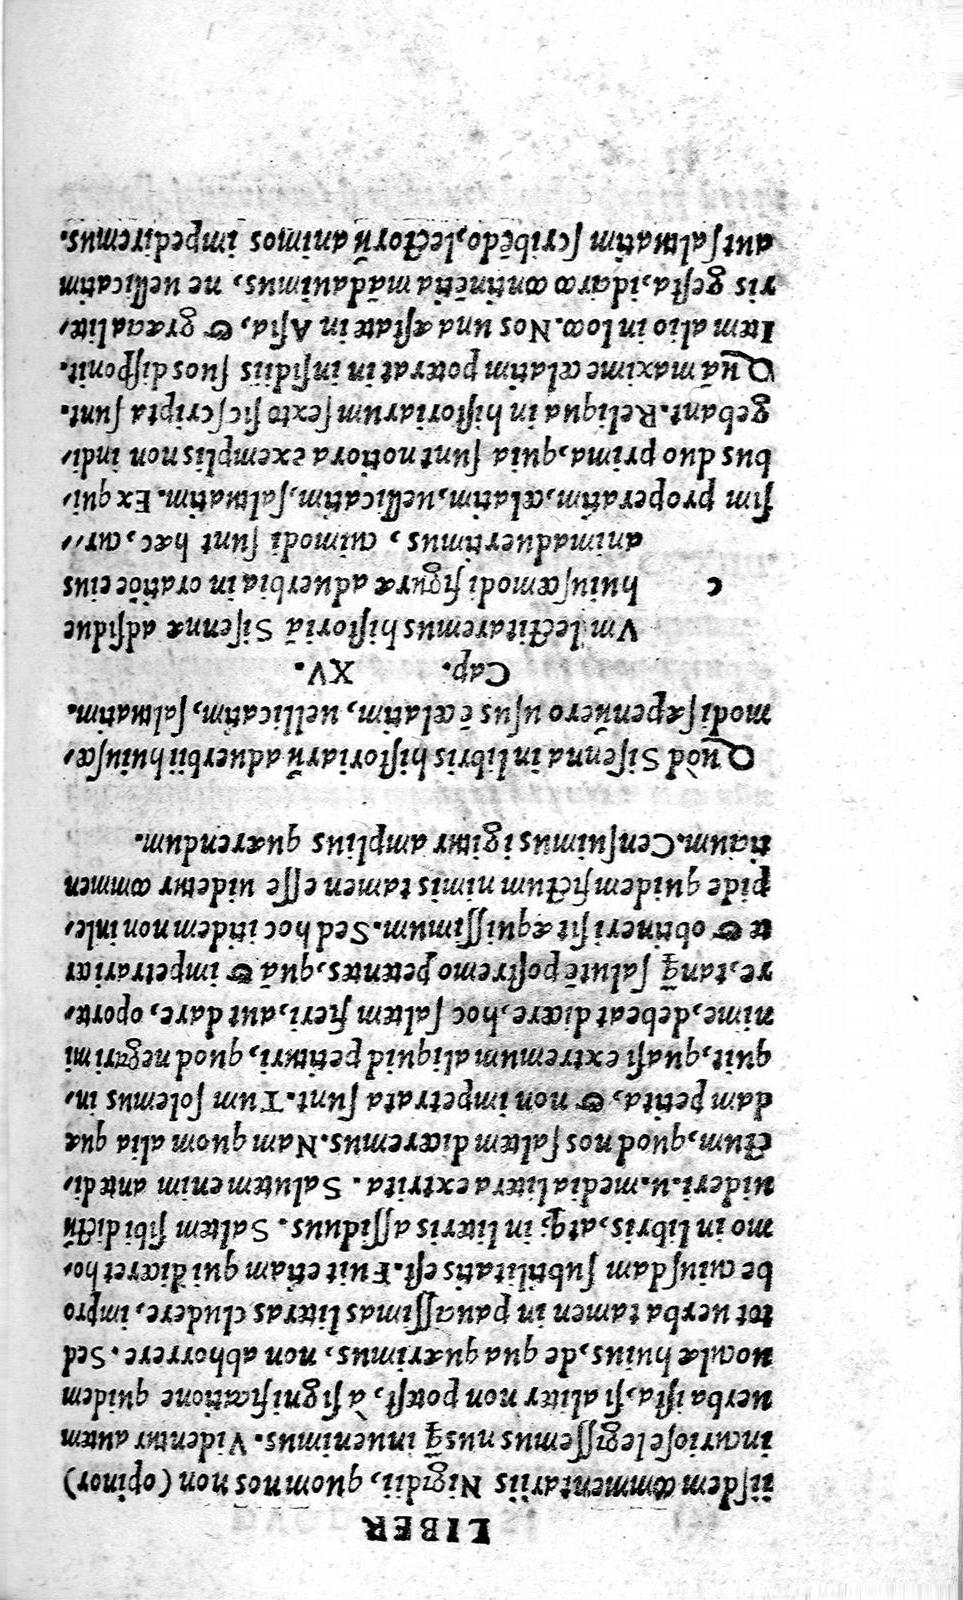 LIBER
iiſdem commentariis Nigidii, quom nos non (opinor)
incurioſe legiſſemus nusq̃ inuenimus. Videntur autem
uerba iſta, ſi aliter non poteſt, à ſignificatione quidem
uoculæ huius, de qua quærimus, non abhorrere. Sed
tot uerba tamen in pauciſſimas literas cludere, impro
bæ cuiuſdam ſubtilitatis eſt. Fuit etiam qui diceret ho-
mo in libris, atq; in literis aſſiduus. Saltem ſibi dictũ
uideri.u. media litera extrita. Salutem enim antedi-
ctum, quod nos ſaltem diceremus. Nam quom alia quæ
dam petita, & non impetrata ſunt. Tum ſolemus in-
quit, quaſi extremum aliquid petituri, quod negari mi
nime, debeat dicere, hoc ſaltem fieri, aut dare, oporte-
re, tanq̃ ſalutẽ poſtremo petentes, quã & impetrariar
te & obtineri ſit æquiſſimum. Sed hoc itidem non inle-
pide quidem fictum nimis tamen eſſe uidetur commen
titium. Cenſuimus igitur amplius quærendum.
Quòd Siſenna in libris hiſtoriarũ aduerbiis huiuſce-
modi ſæpenũero uſus ẽ cœlatim, uellicatim, ſaltuatim.
Cap. XV.
c Vm lectitaremus hiſtoriã Siſennæ adſidue
huiuſcemodi figuræ aduerbia in oratiõe eius
animaduertimus, cuimodi ſunt hæc, cur-
ſim properatim, cœlatim, uellicatim, ſaltuatim. Ex qui-
bus duo prima, quia ſunt notiora exemplis non indi-
gebant. Reliqua in hiſtoriarum ſexto ſic ſcripta ſunt.
Quã maxime cœlatim poterat in inſidiis ſuos diſponit.
Item alio in loco. Nos una æſtate in Aſia, & græcia lite-
ris geſta, idarco cõtinẽtia mãdauimus, ne uellicatim
aut ſaltuatim ſcribẽdo, lectorũ animos impediremus.